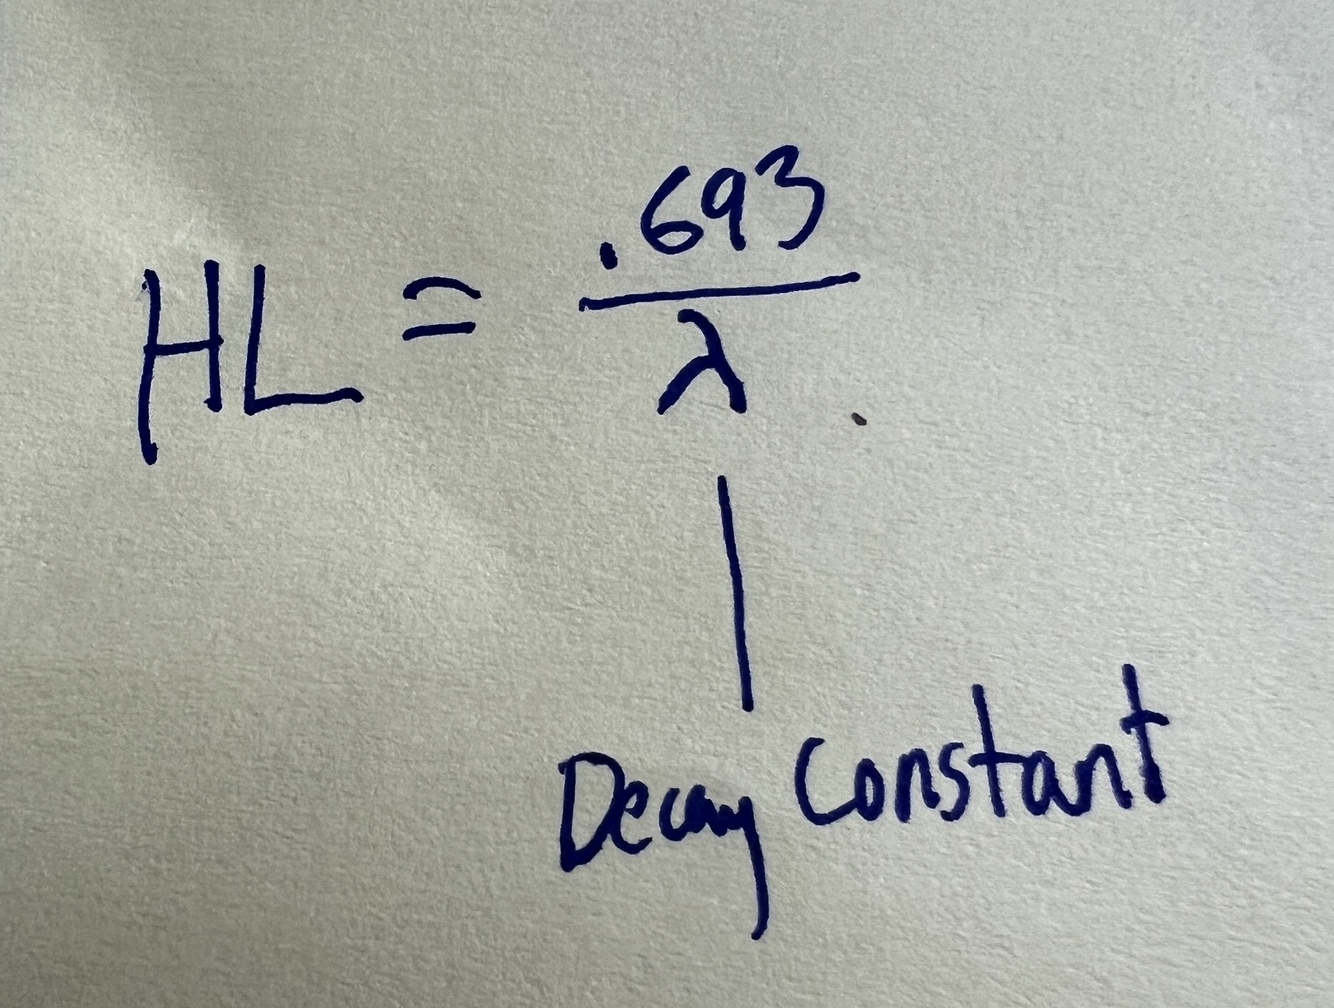 HL = .693
λ
Decay Constant